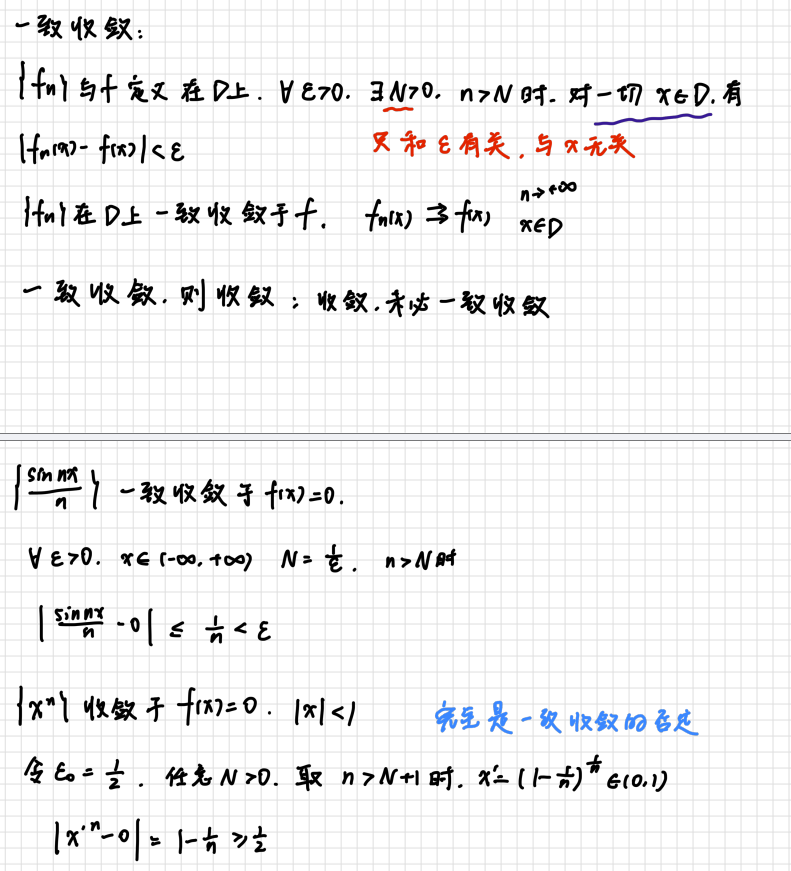 一致收敛:
{fn}与f定义在D上. ∀ε>0. ∃N>0, n>N时. 对一切 x∈D. 有
|fn(x) - f(x)| < ε 只和ε有关, 与x无关
{fn}在D上一致收敛于f. fn(x) ⇉ f(x) n→+∞ x∈D
一致收敛. 则收敛; 收敛. 未必一致收敛
{sin nx / n} 一致收敛于 f(x)=0.
∀ε>0. x∈(-∞, +∞) N = 1/ε. n>N时
|sin nx / n - 0| ≤ 1/n < ε
{xⁿ} 收敛于 f(x)=0. |x|<1 完全是一致收敛的否定
令 ε₀ = 1/2. 任意 N>0. 取 n>N+1时. x' = (1 - 1/n)^(1/n) ∈(0,1)
|x'ⁿ - 0| = 1 - 1/n ≥ 1/2